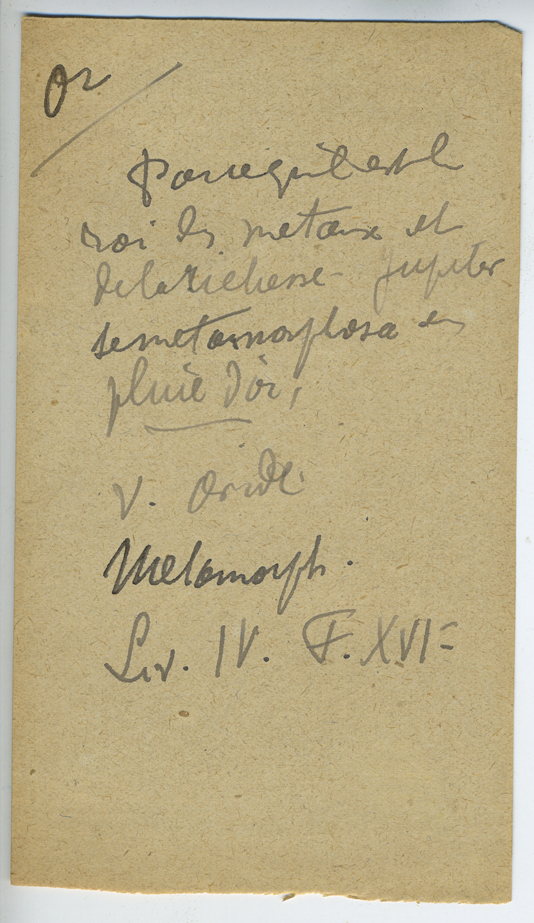 Or
Parcequ'il est le
roi des metaux et
de la richesse - Jupiter
se metamorphosa en
pluie d'or,
V. Ovide
Metamorph.
Liv. IV. F. XVI =